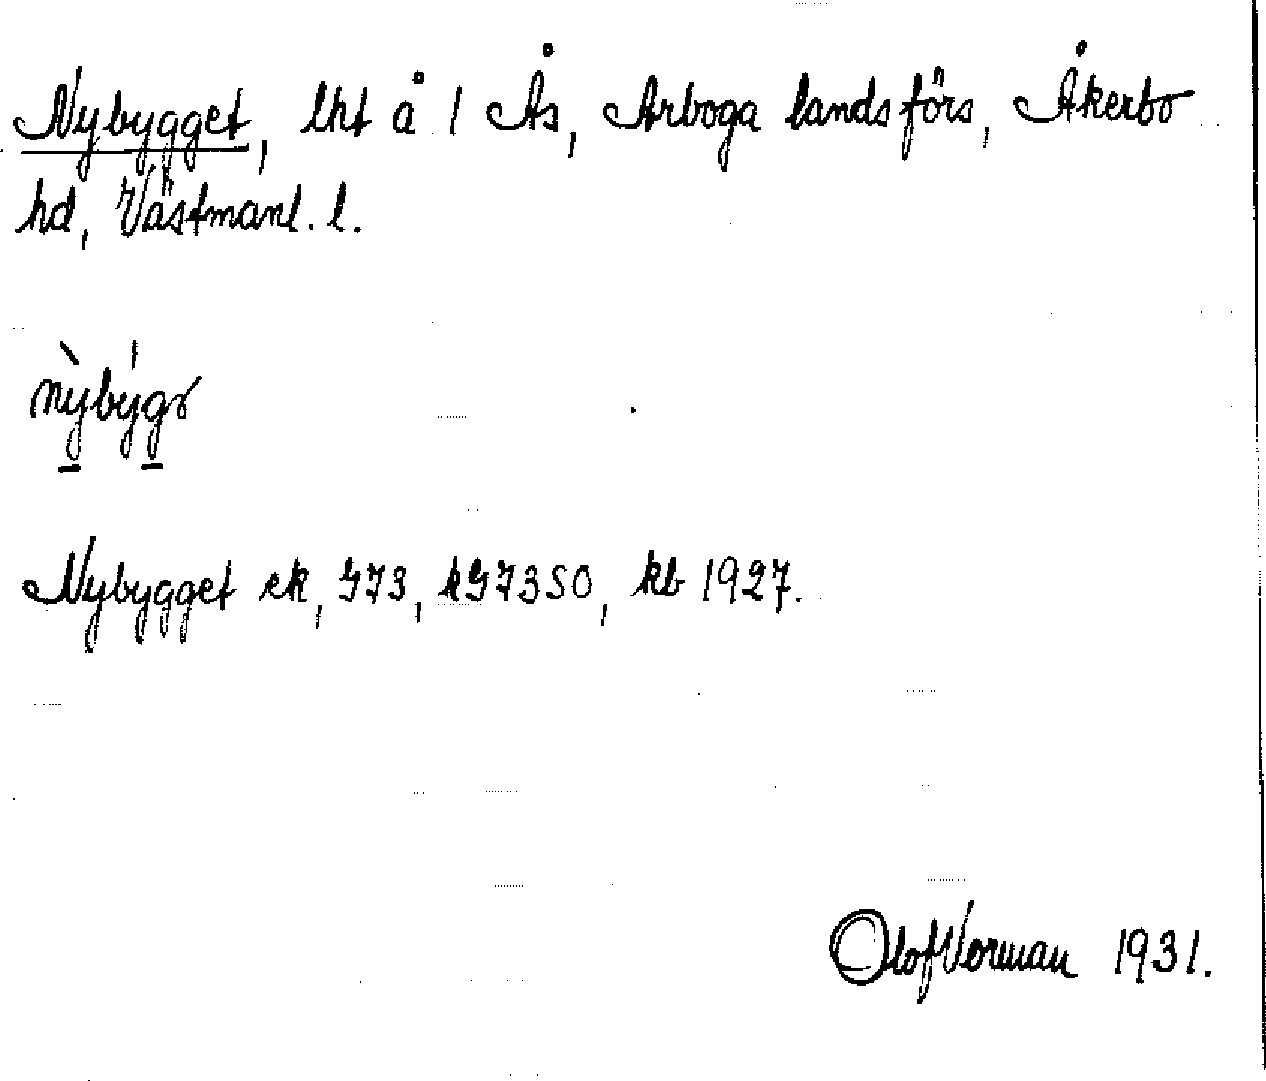 Nybygget, lht å 1 Ås, Arboga landsförs, Åkerbo
hd, Västmanl. l.
nỳbýgr
Nybygget ek, GJ3, kGJ3SO, kb 1927.
Olof Vorman 1931.